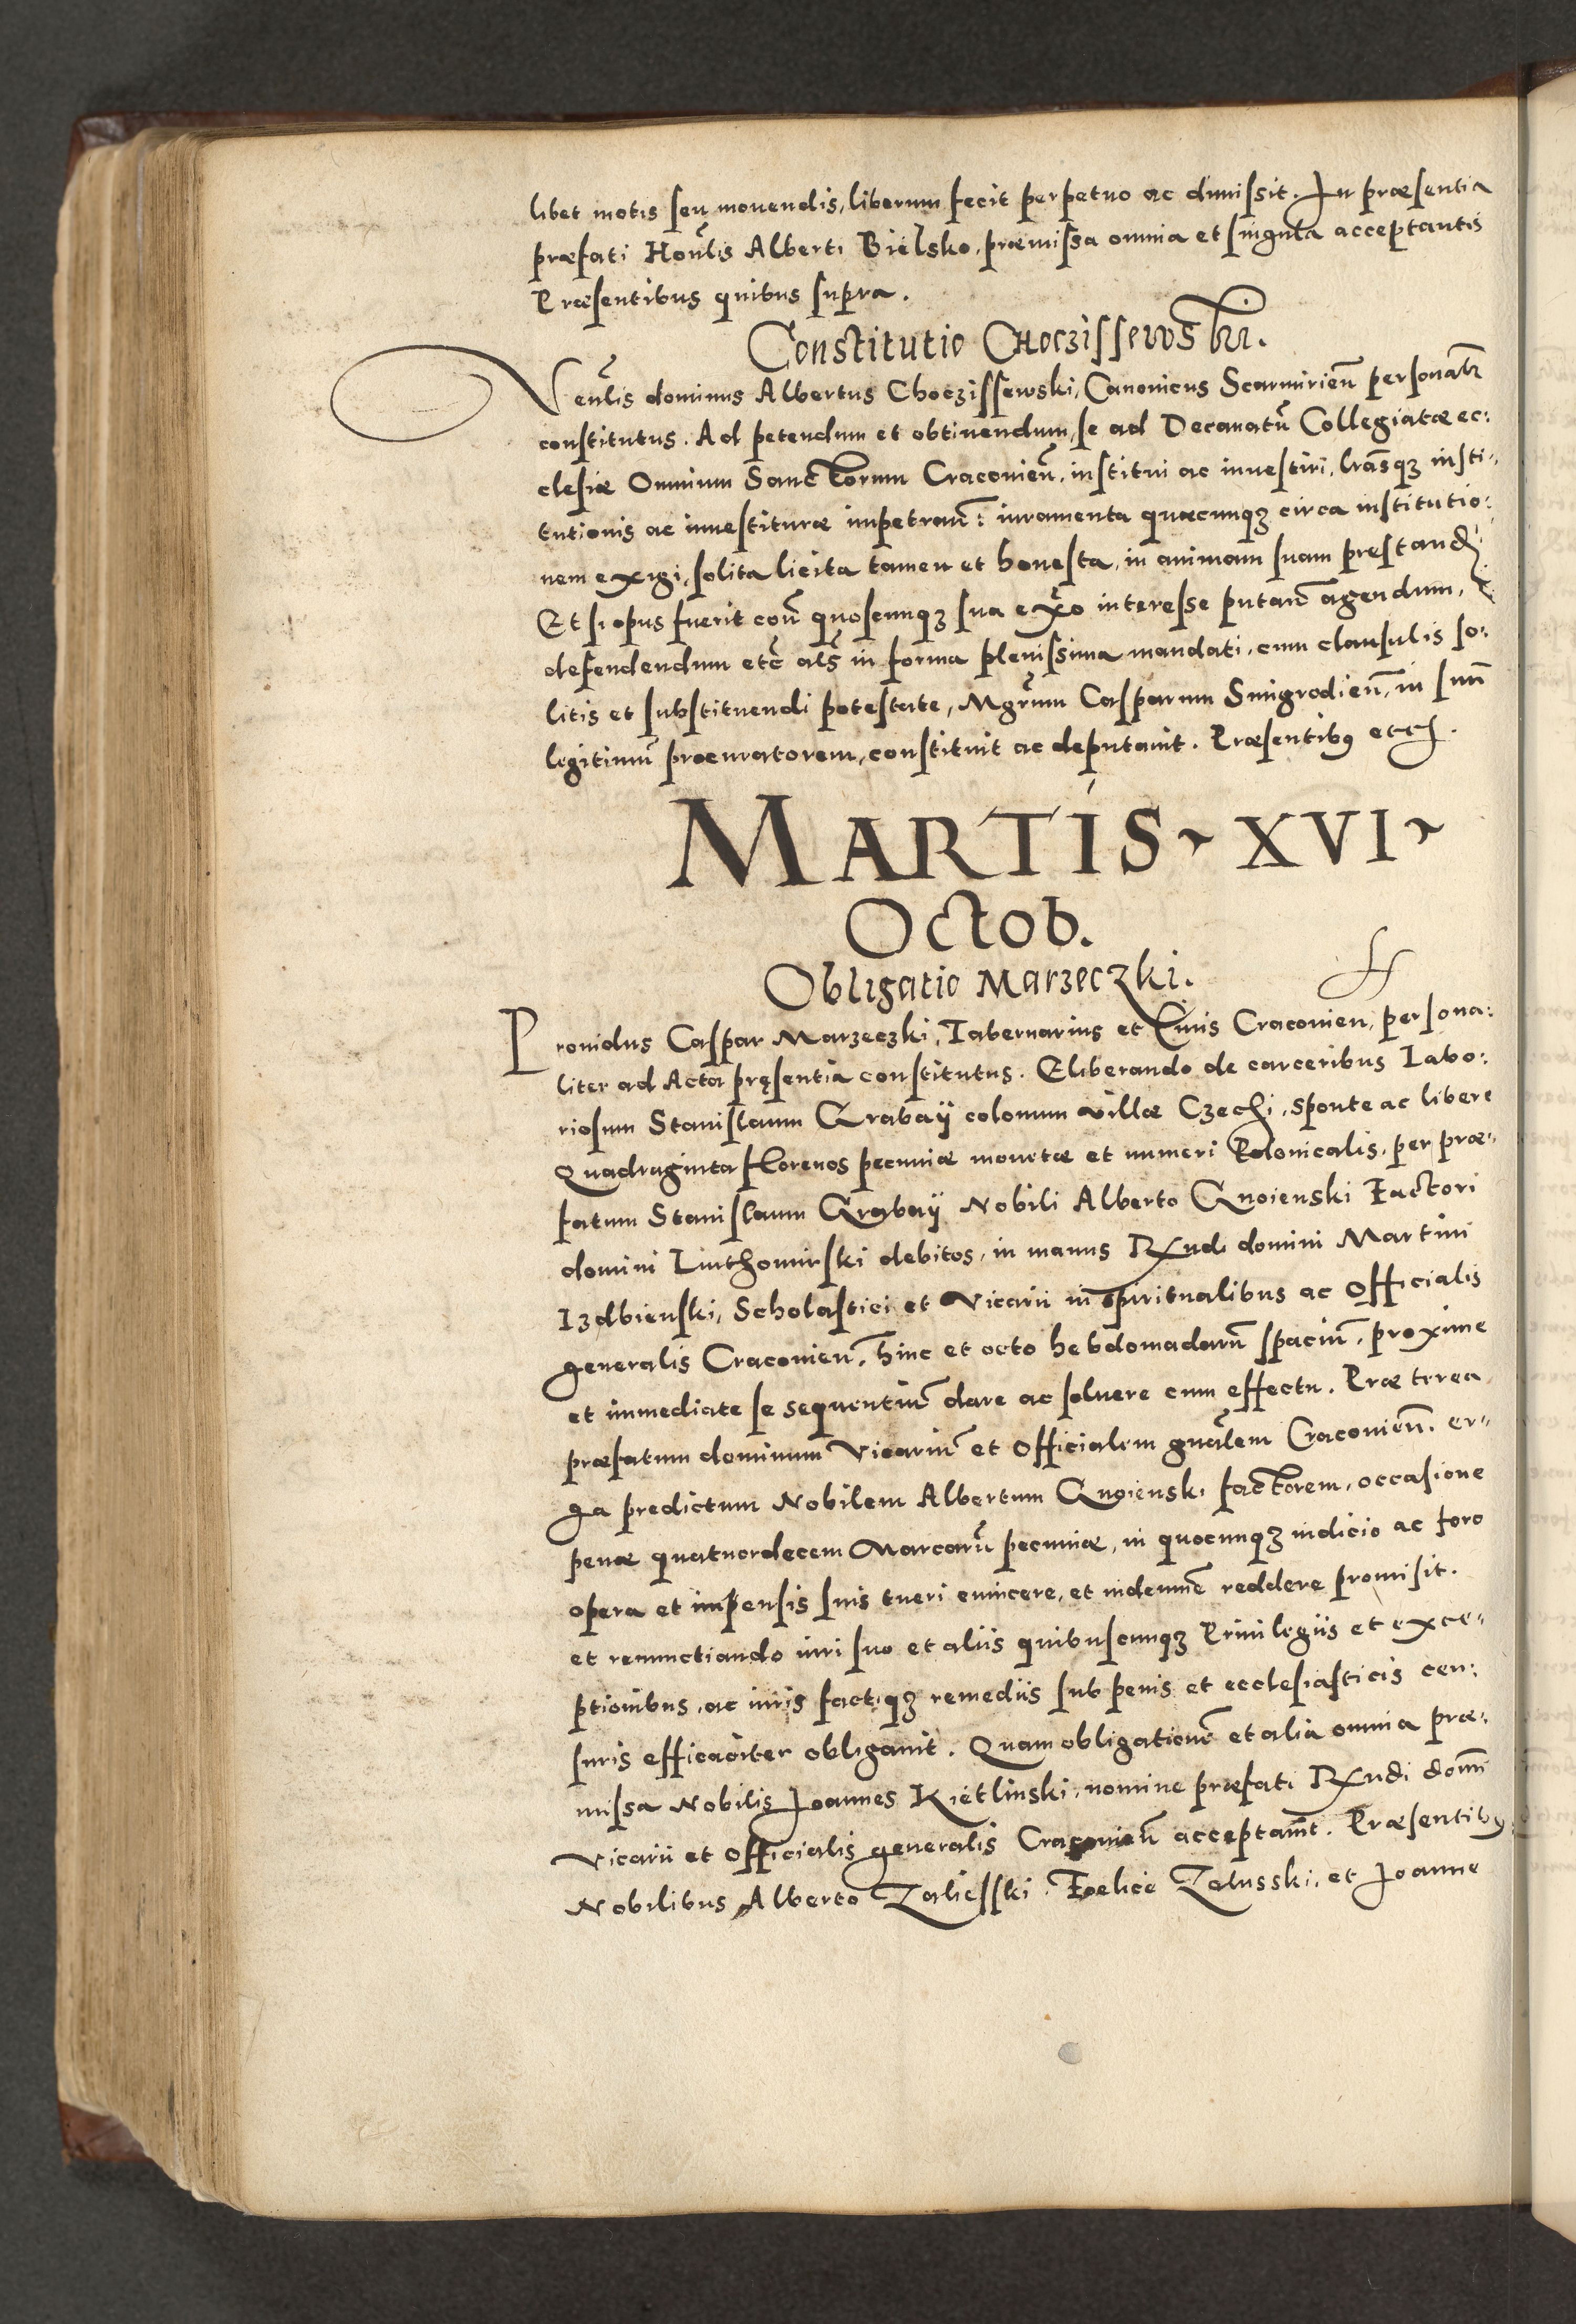 libet motis seu mouendis, liberum fecit perpetuo ac dimissit. In præsentia
præfati Honlis Alberti Bielsko, præmissa omnia et singula acceptantis
Præsentibus quibus supra.
Constitutio Choczissewski.
Venlis dominus Albertus Choczissewski, Canonicus Scarmirien personalr
constitutus. Ad petendum et obtinendum, se ad Decanatū Collegiatæ ec:
clesiæ Omnium Sanctorum Cracovien, institui ac inuestiri, lrasq3 insti-
tutionis ac inuestituræ impetran: iuramenta quæcunq3 circa institutio:
nem exigi, solita licita tamen et honesta, in animam suam prestand
Et si opus fuerit con quoscunq3 sua exo interesse putan agendum,
defendendum etc als in forma plenissima mandati, cum clausulis so:
litis et substituendi potestate, Mgrum Casparum Smigrodien, in suū
legitimū procuratorem, constituit ac deputauit. Præsentibus etc.
MARTIS XVI
Octob.
Obligatio Marzeczki.
Prouidus Caspar Marzeczki, Tabernarius et Ciuis Cracovien, persona:
liter ad Acta pręsentia constitutus. Eliberando de carceribus Labo:
riosum Stanislaum Grabaÿ colonum villæ Czechi, sponte ac libere
Quadraginta florenos pecuniæ monetæ et numeri Polonicalis, per præ-
fatum Stanislaum Grabaÿ Nobili Alberto Gnoienski Factori
domini Linthomirski debitos, in manus Rxndi domini Martini
Izdbienski, Scholastici et Vicarii in spiritualibus ac Officialis
generalis Cracovien, hinc et octo hebdomadarū spaciū, proxime
et immediate se sequentiū dare ac soluere cum effectu. Præterea
præfatum dominum Vicariū et Officialem gnalem Cracovien. er-
ga predictum Nobilem Albertum Gnoienski factorem, occasione
penæ quatuordecem Marcarū pecuniæ, in quocunq3 iudicio ac foro
opera et impensis suis tueri euincere, et indemnē reddere promisit.
et renunctiando iuri suo et aliis quibuscunq3 Priuilegiis et exce-
ptionibus, ac iuris factiq3 remediis sub penis et ecclesiasticis cen:
suris efficaciter obligauit. Quam obligationē et alia omnia præ-
missa Nobilis Joannes Kietlinski, nomine præfati Rxndi domi
Vicarii et Officialis generalis Cracovien acceptauit. Præsentibus
Nobilibus Alberto Zaliesski, Foelice Zelusski, et Joanne